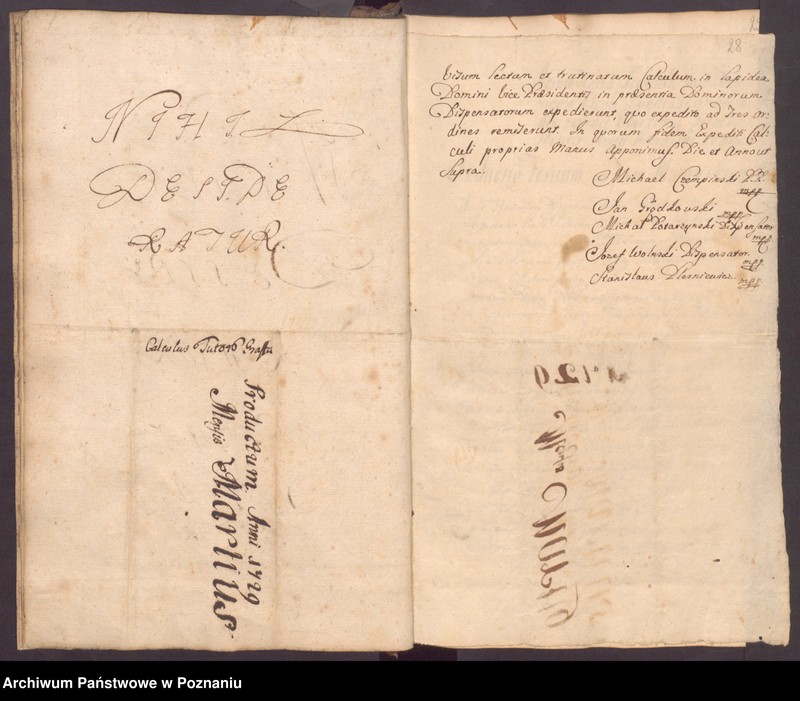 NIHIL
DESIDE
RATUR.
Calculus
Productum Anni 1729
Mensis Martius
28
Visum lectum et trutinatum Calculum in lapidea
Domini Vice Præsidentis in præsentia Dominorum
Dispensatorum expedierunt, quo expedito ad Tres Or-
dines remiserunt. In quorum fidem Expediti Cal-
culi proprias Manus apponimus. Die et Anno ut
Supra.
Michael Czempinski
mpp
Jan Grodkowski
mpp
Michał Potarzynski Dispensator
mpp
Jozef Wolnski Dispensator.
mpp
Stanislaus
mpp
Archiwum Państwowe w Poznaniu